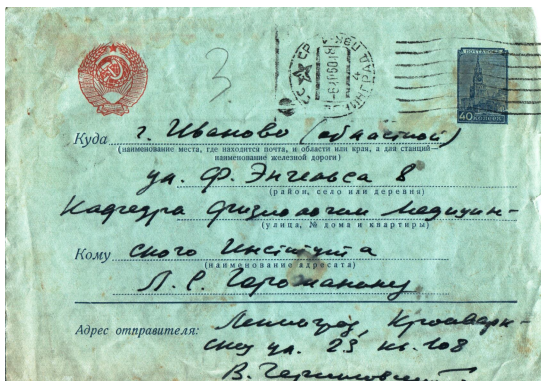 3
СССР
ПОЧТА СССР
40 КОПЕЕК
Куда г. Иваново (областной)
(наименование места, где находится почта, и области или края, а для станций—
наименование железной дороги)
ул. Ф. Энгельса 8
(район, село или деревня)
Кафедра физиологии Медицин-
(улица, № дома и квартиры)
Кому ского Института
(наименование адресата)
Л. С.
Адрес отправителя: Ленинград,
ул. 23 кв. 108
В. Черниговский